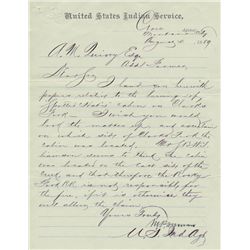 United States Indian Service,
Crow Agency
Montana Ty
August 1889
Esq
Dear Sir
I hand you herewith
papers relative to the burning of
Spotted cabin on Clarks
Fork. I wish you would
look the matter up and ascertain
on which side of Clarks Fork the
cabin was located. Mr
seems to think the cabin
was located on the East side of the
Creek and that therefore the Rocky
Fork RR. is not responsible for
the fire, if it is otherwise they
will allow the claim.
Yours Truly
U S Ind. Agt